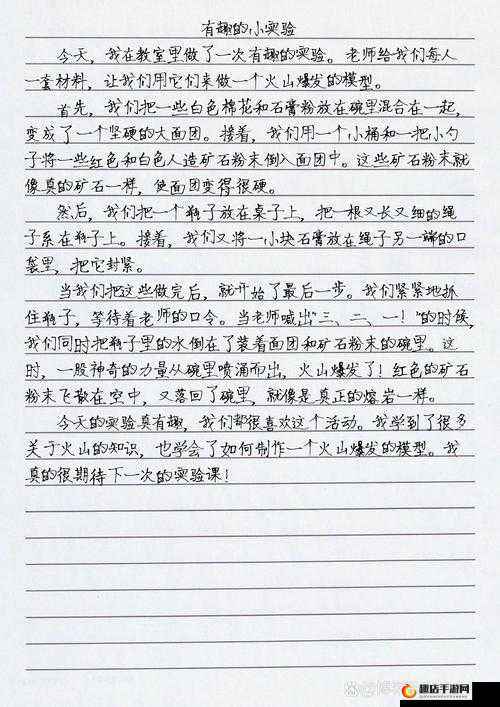 有趣的小实验
今天，我在教室里做了一次有趣的实验。老师给我们每人
一套材料，让我们用它们来做一个火山爆发的模型。
首先，我们把一些白色棉花和石膏粉放在碗里混合在一起，
变成了一个坚硬的大面团。接着，我们用一个小桶和一把小勺
子将一些红色和白色人造矿石粉末倒入面团中。这些矿石粉末就
像真的矿石一样，使面团变得很硬。
然后，我们把一个瓶子放在桌子上，把一根又长又细的绳
子系在瓶子上。接着，我们又将一小块石膏放在绳子另一端的口
袋里，把它封紧。
当我们把这些做完后，就开始了最后一步。我们紧紧地抓
住瓶子，等待着老师的口令。当老师喊出“三、二、一！”的时候，
我们同时把瓶子里的水倒在了装着面团和矿石粉末的碗里。这
时，一股神奇的力量从碗里喷涌而出，火山爆发了！红色的矿石
粉末飞散在空中，又落回了碗里，就像是真正的熔岩一样。
今天的实验真有趣，我们都很喜欢这个活动。我学到了很多
关于火山的知识，也学会了如何制作一个火山爆发的模型。我
真的很期待下一次的实验课！
趣店手游网